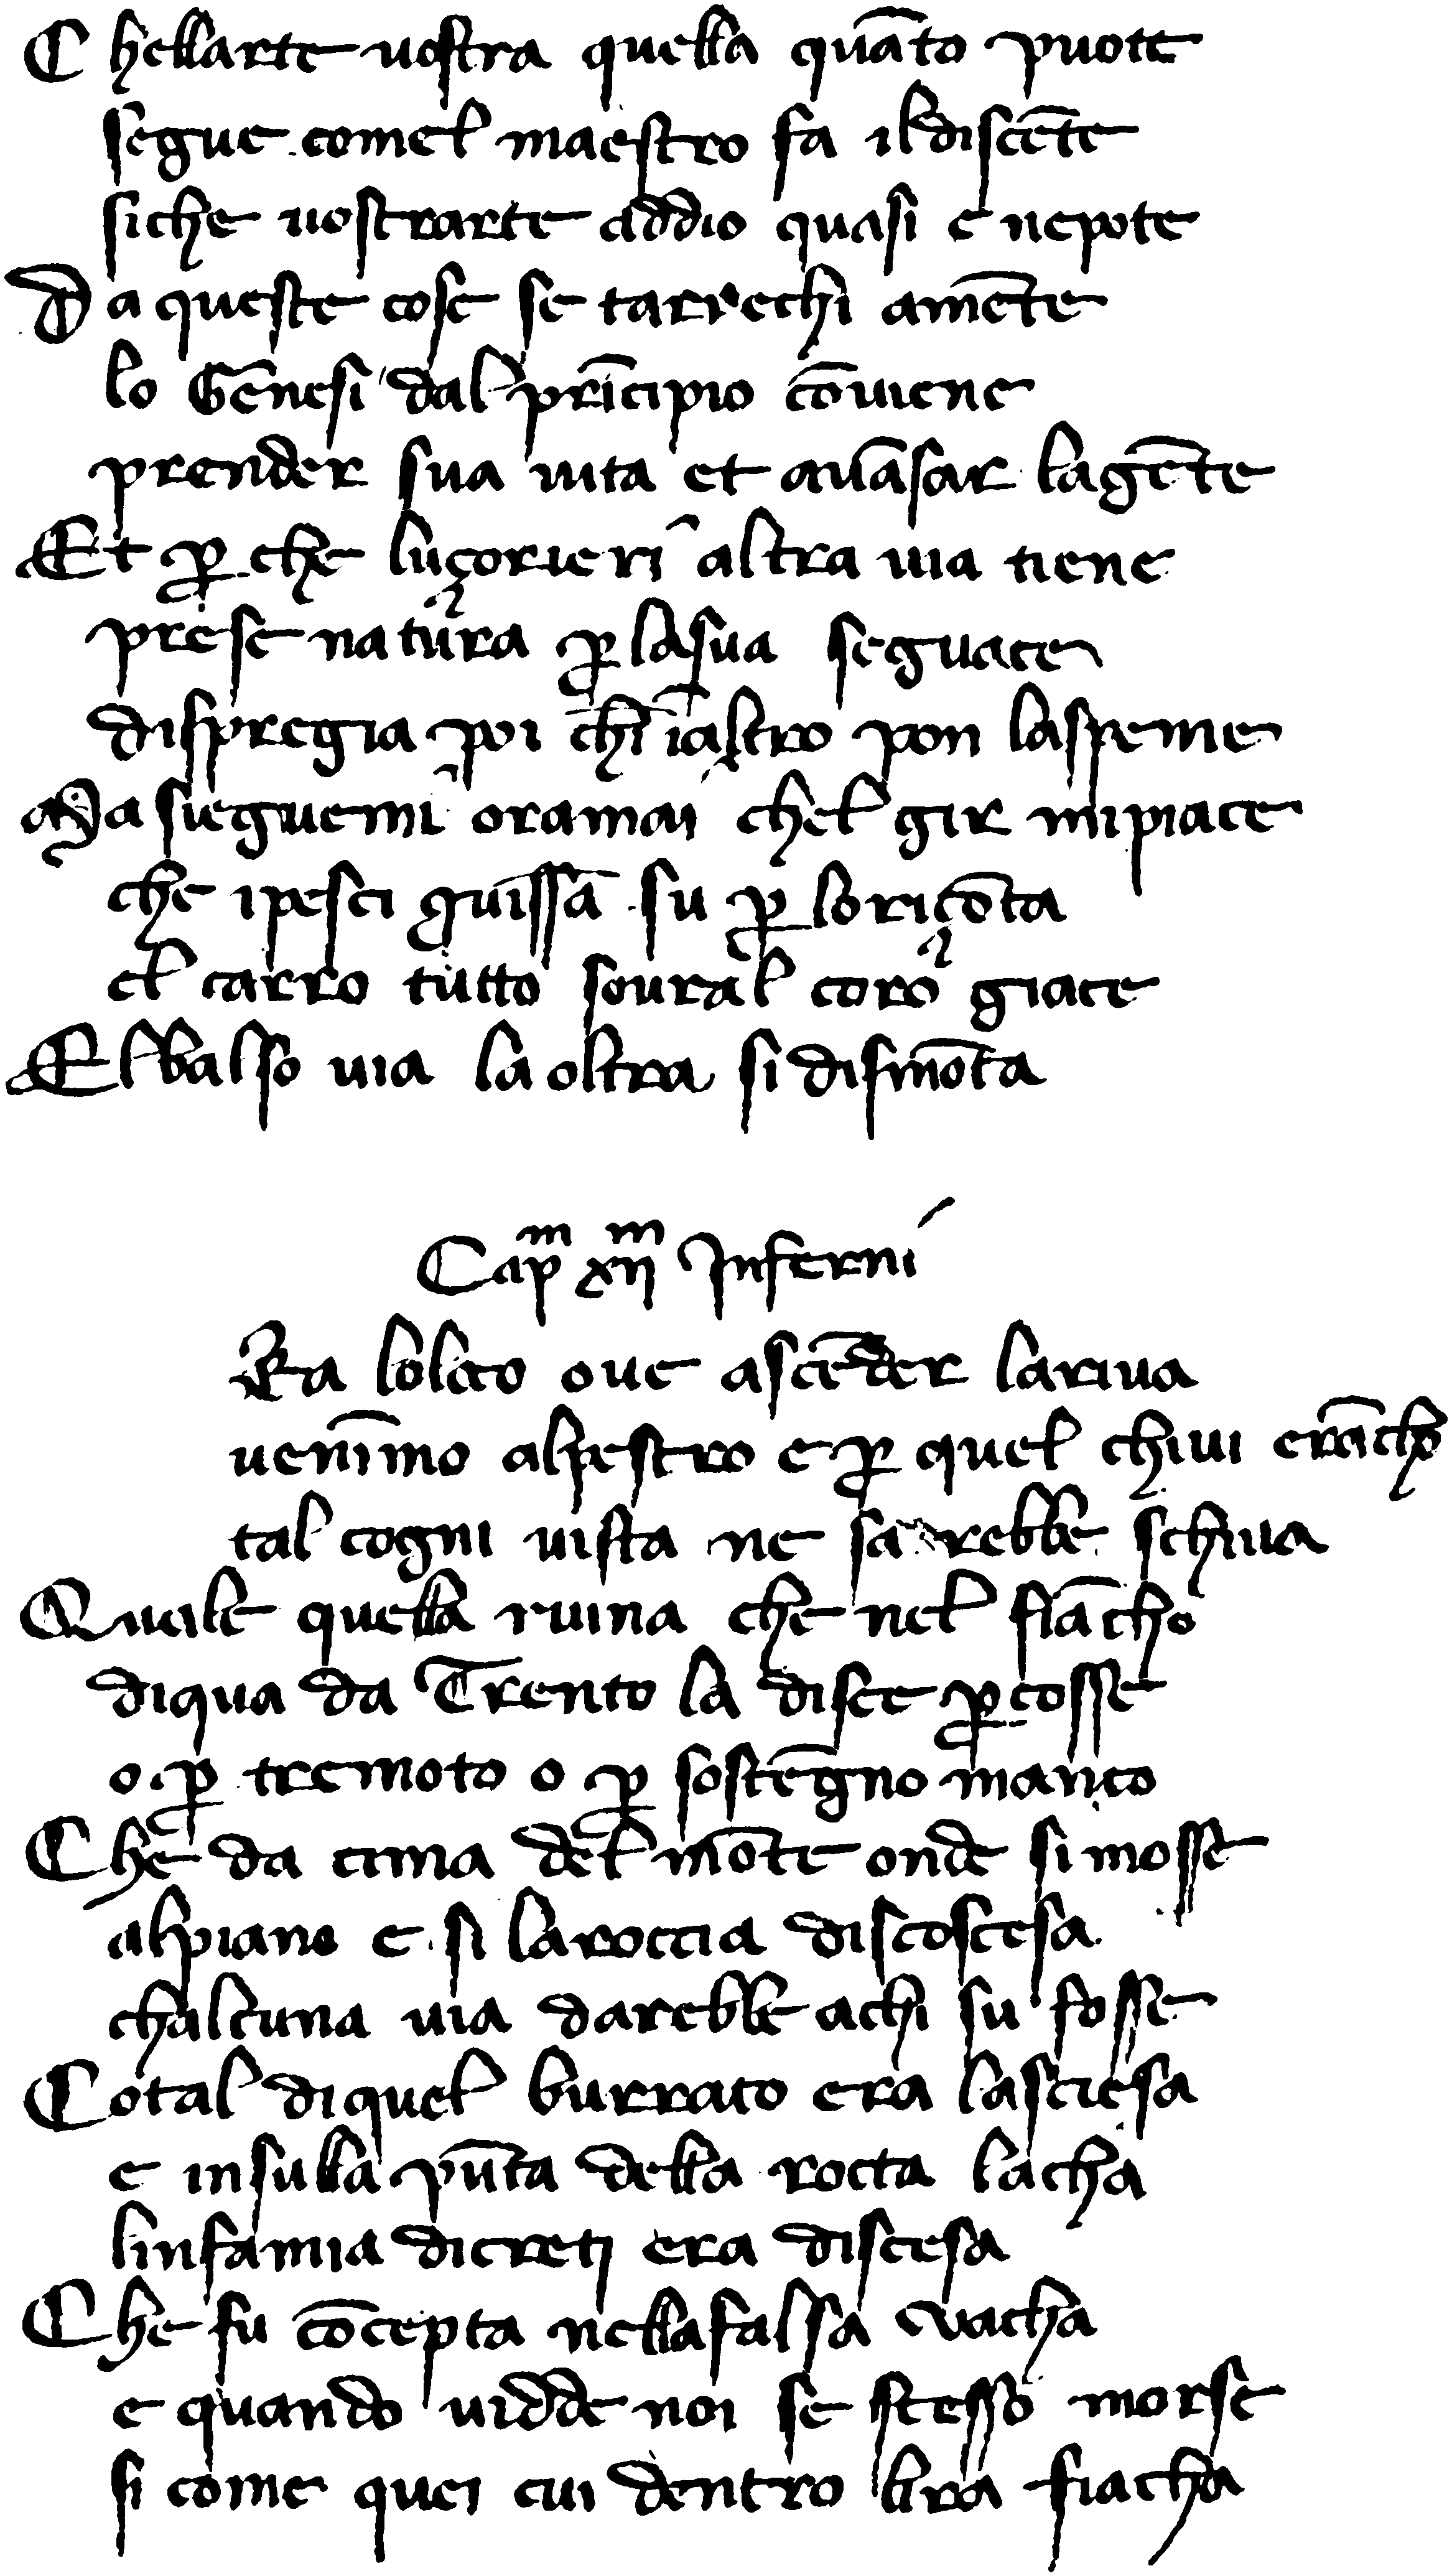 Chellarte uostra quella quāto puote
segue comel maestro fa ildiscēte
siche uostrarte addio quasi e nepote
Da queste cose se tarrechi amēte
lo Gēnesi dal prīcipio cōuiene
prender sua uita et auāsar lagēte
Et p̱ che luçorieri altra uia tiene
prese natura p̱ lasua seguace
dispregia poi chī ialtro pon laspeme
Ma sieguemi oramai chel gir mipiace
che ipesci guissā su p̱ loriçōta
el carro tutto soural coro giace
Elbalso uia la oltra si dismōta
Capm xiim Inferni
Ra loloco oue ascēder lariua
uenīmo alpestro e p̱ quel chiui erācho
tal cogni uista ne sarebbe schiua
Quale quella ruina che nel fiācho
diqua da Trento la disce p̱cosse
o p̱ tremoto o p̱ sostēgno manco
Che da cima del mōte onde simosse
alpiano e si laroccia discoscesa
chalcuna uia darebbe achi su fosse
Cotal diquel burrato era lasciesa
e insulla pūta della rocta lacha
linfamia dicreti era discesa
Che fu cōcepta nellafalsa vacha
e quando uidde noi se stesso morse
si come quei cui dentro lira fiacha